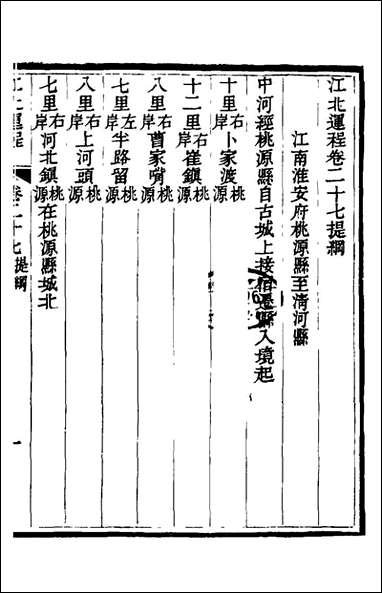 江北運程卷二十七提綱
江南淮安府桃源縣至清河縣
中河經桃源縣自古城上接宿遷縣入境起
十里右岸卜家渡桃源
十二里右岸崔鎮桃源
八里右岸曹家嘴桃源
七里左岸半路留桃源
八里右岸上河頭桃源
七里右岸河北鎮桃源在桃源縣城北
江北運程 卷二十七提綱 一